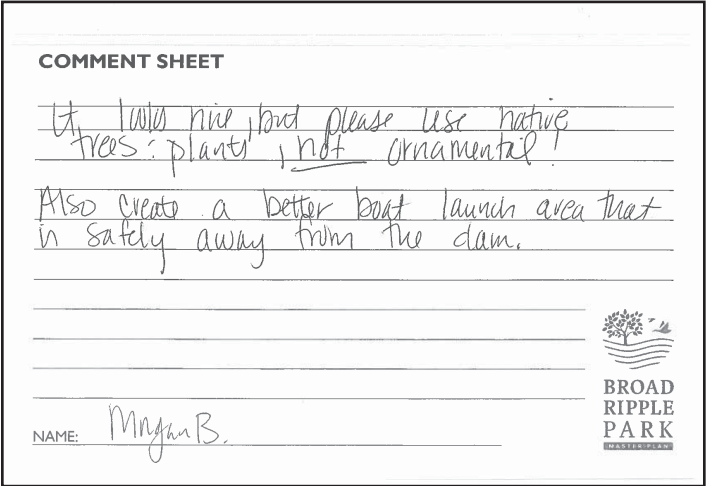 COMMENT SHEET
It looks nice, but please use native
trees : plants, not ornamental!
Also create a better boat launch area that
is safely away from the dam.
NAME: Morgan B.
BROAD
RIPPLE
PARK
MASTER PLAN